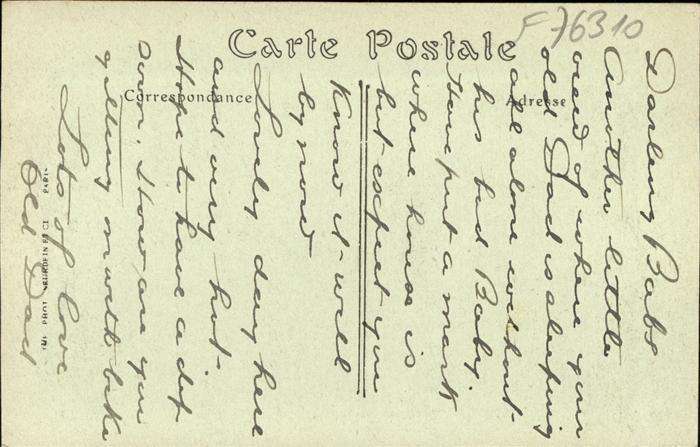 F 76310
Carte Postale
Correspondance
Adresse
Darling Babs
Another little
view of where your
old Dad is sleeping
all alone without
his bed Baby.
Have put a mark
where house is
but expect you
know it well
by now
Lovely day here
and very hot.
Hope to have a dip
soon. How are you
getting on with bike
Lots of love
Old Dad
PARIS